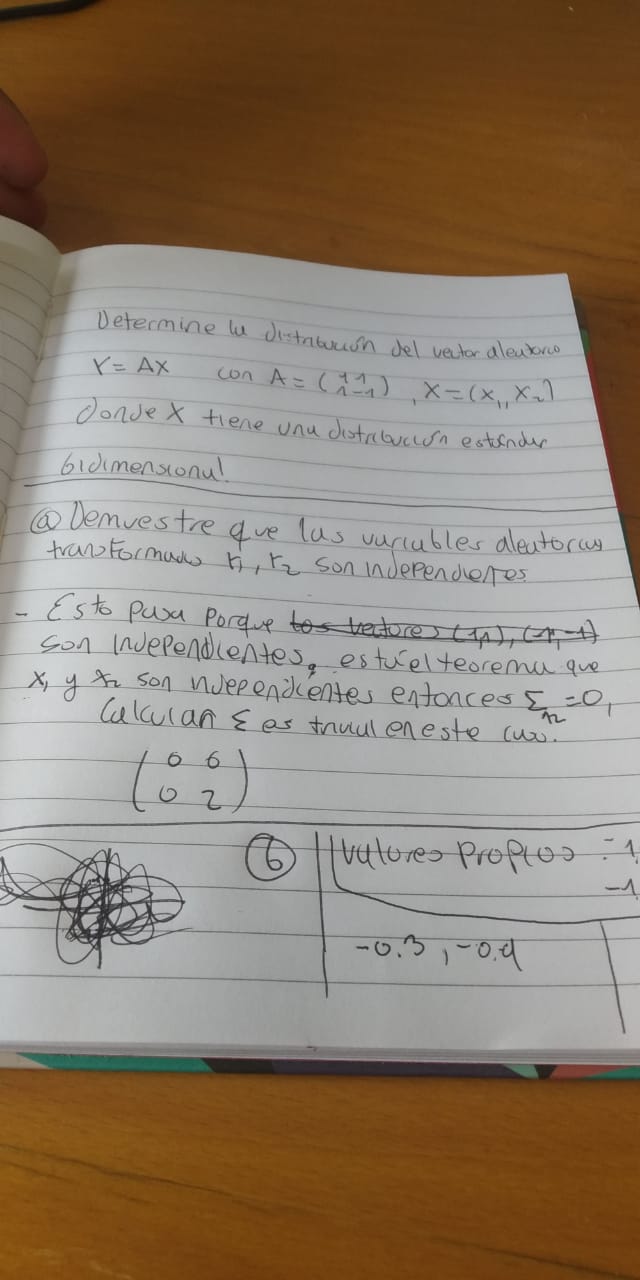 Determine la distribución del vector aleatorio
Y = AX con A = (1 1 1 -1), X = (X1, X2)
donde X tiene una distribución estándar
bidimensional.
ⓐ Demuestre que las variables aleatorias
transformado Y1, Y2 son independientes
- Esto pasa porque los vectores (1,1), (-1,-1)
son independientes, está el teorema que
X1 y X2 son independientes entonces Σ12 = 0,
Calcular Σ es trivial en este caso.
0 0
0 2
⑥ Valores Propios = 1,
-1
-0.3, -0.9